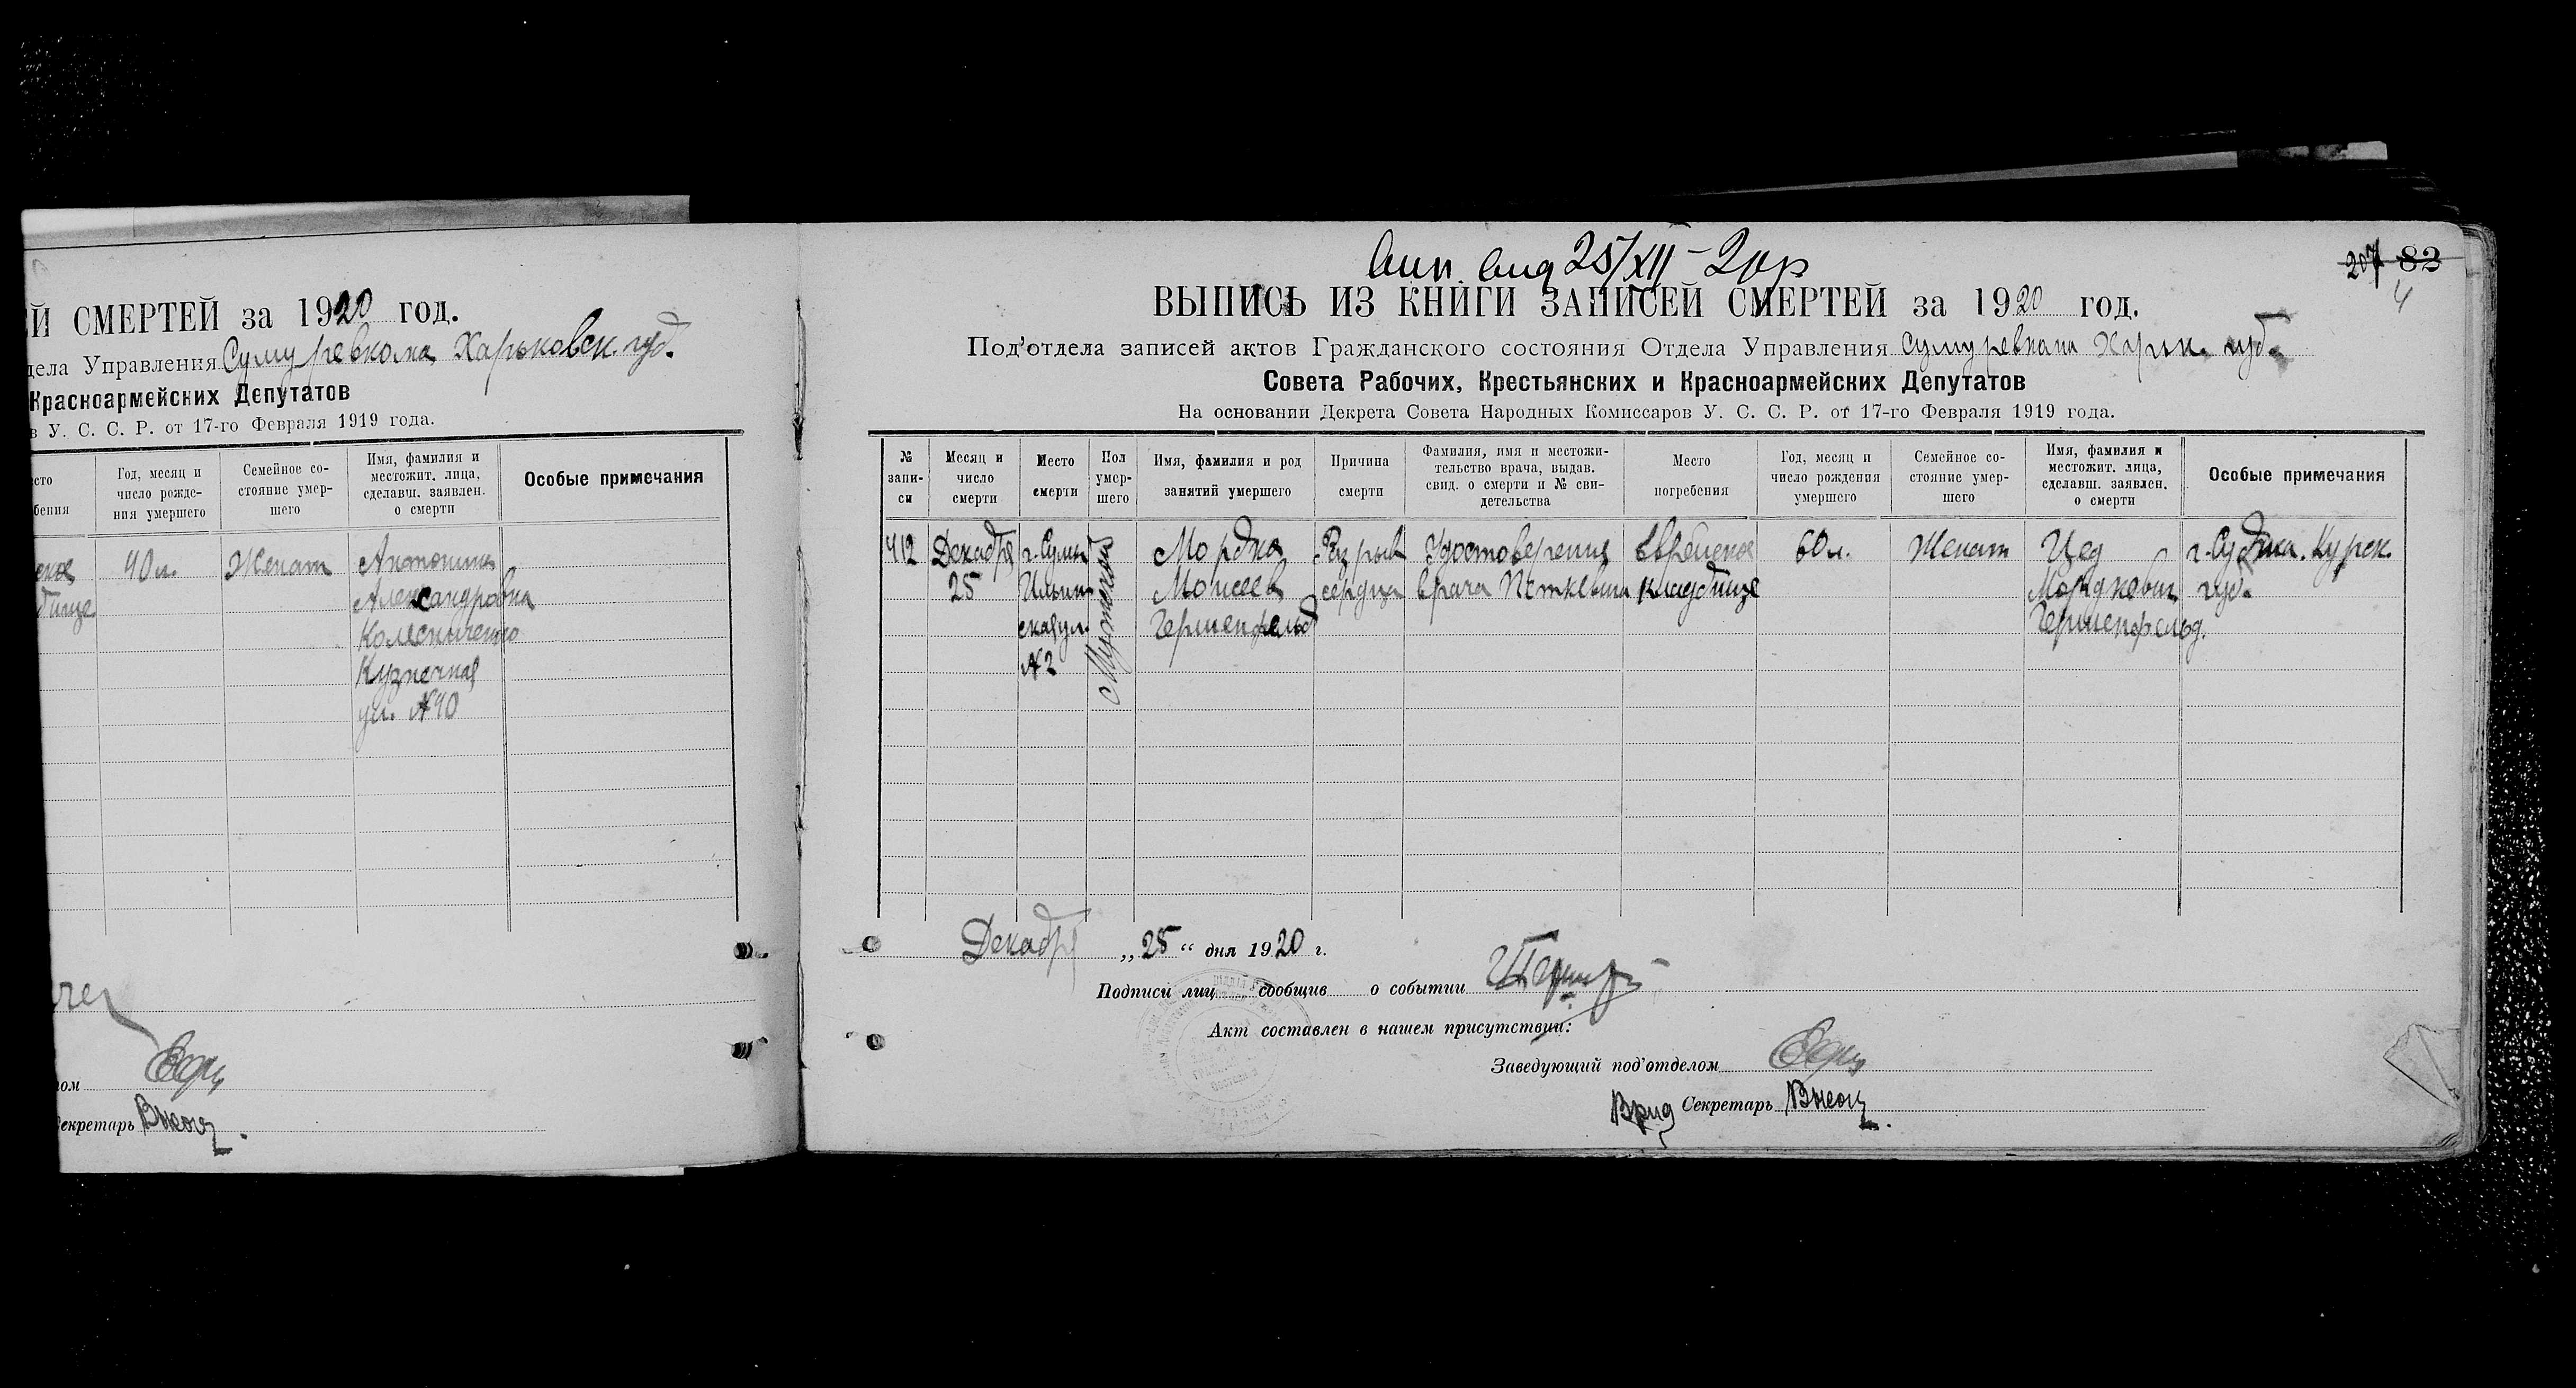 Й СМЕРТЕЙ за 1920 год.
дела Управления Суму ревкома Харьковск. губ.
Красноармейских Депутатов
в У. С. С. Р. от 17-го Февраля 1919 года.
сто
бения
Год, месяц и
число рожде-
ния умершего
Семейное со-
стояние умер-
шего
Имя, фамилия и
местожит. лица,
сделавш. заявлен.
о смерти
Особые примечания
ское
бище
40 л.
Женат
Антонина
Александровна
Колесниченко
Кузнечная
ул. №40
ом
Секретарь
25/XII-
207 82
4
ВЫПИСЬ ИЗ КНИГИ ЗАПИСЕЙ СМЕРТЕЙ за 1920 год.
Под'отдела записей актов Гражданского состояния Отдела Управления Сумуревкома Харьк. губ.
Совета Рабочих, Крестьянских и Красноармейских Депутатов
На основании Декрета Совета Народных Комиссаров У. С. С. Р. от 17-го Февраля 1919 года.
№
запи-
си
Месяц и
число
смерти
Место
смерти
Пол
умер-
шего
Имя, фамилия и род
занятий умершего
Причина
смерти
Фамилия, имя и местожи-
тельство врача, выдав.
свид. о смерти и № сви-
детельства
Место
погребения
Год, месяц и
число рождения
умершего
Семейное со-
стояние умер-
шего
Имя, фамилия и
местожит. лица,
сделавш. заявлен.
о смерти
Особые примечания
412
Декабря
25
г. Сумы
Ильин
ская ул.
№2
Мужеский
Мордка
Моисеев
Гершенфельд
Разрыв
сердца
Удостоверения
врача Петкевича
Еврейское
кладбище
60 л.
Женат
Цед
Мордкович
Гершенфельд.
г. Суджа. Курск.
губ.
Декабря „25“ дня 1920 г.
Подписи лиц сообщив о событии
Акт составлен в нашем присутствии:
Заведующий под'отделом
Врид Секретарь